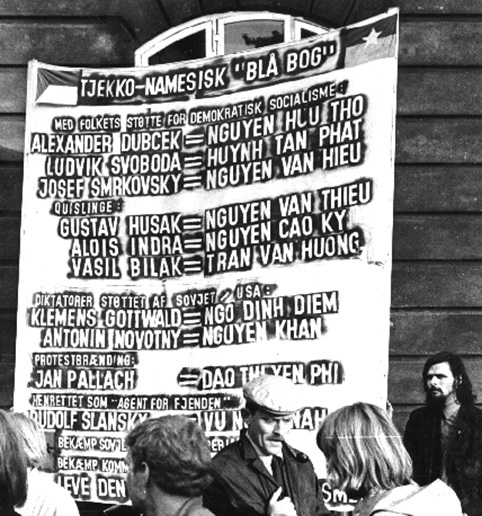 TJEKKO-NAMESISK "BLÅ BOG"
MED FOLKETS STØTTE FOR DEMOKRATISK SOCIALISME:
ALEXANDER DUBCEK = NGUYEN HUU THO
LUDVIK SVOBODA = HUYNH TAN PHAT
JOSEF SMRKOVSKY = NGUYEN VAN HIEU
QUISLINGE:
GUSTAV HUSAK = NGUYEN VAN THIEU
ALOIS INDRA = NGUYEN CAO KY
VASIL BILAK = TRAN VAN HUONG
DIKTATORER STØTTET AF SOVJET / USA:
KLEMENS GOTTWALD = NGO DINH DIEM
ANTONIN NOVOTNY = NGUYEN KHAN
PROTESTBRÆNDING:
JAN PALLACH = DAO THI YEN PHI
HENRETTET SOM "AGENT FOR FJENDEN"
RUDOLF SLANSKY VU
BEKÆMP
BEKÆMP
LEVE DEN